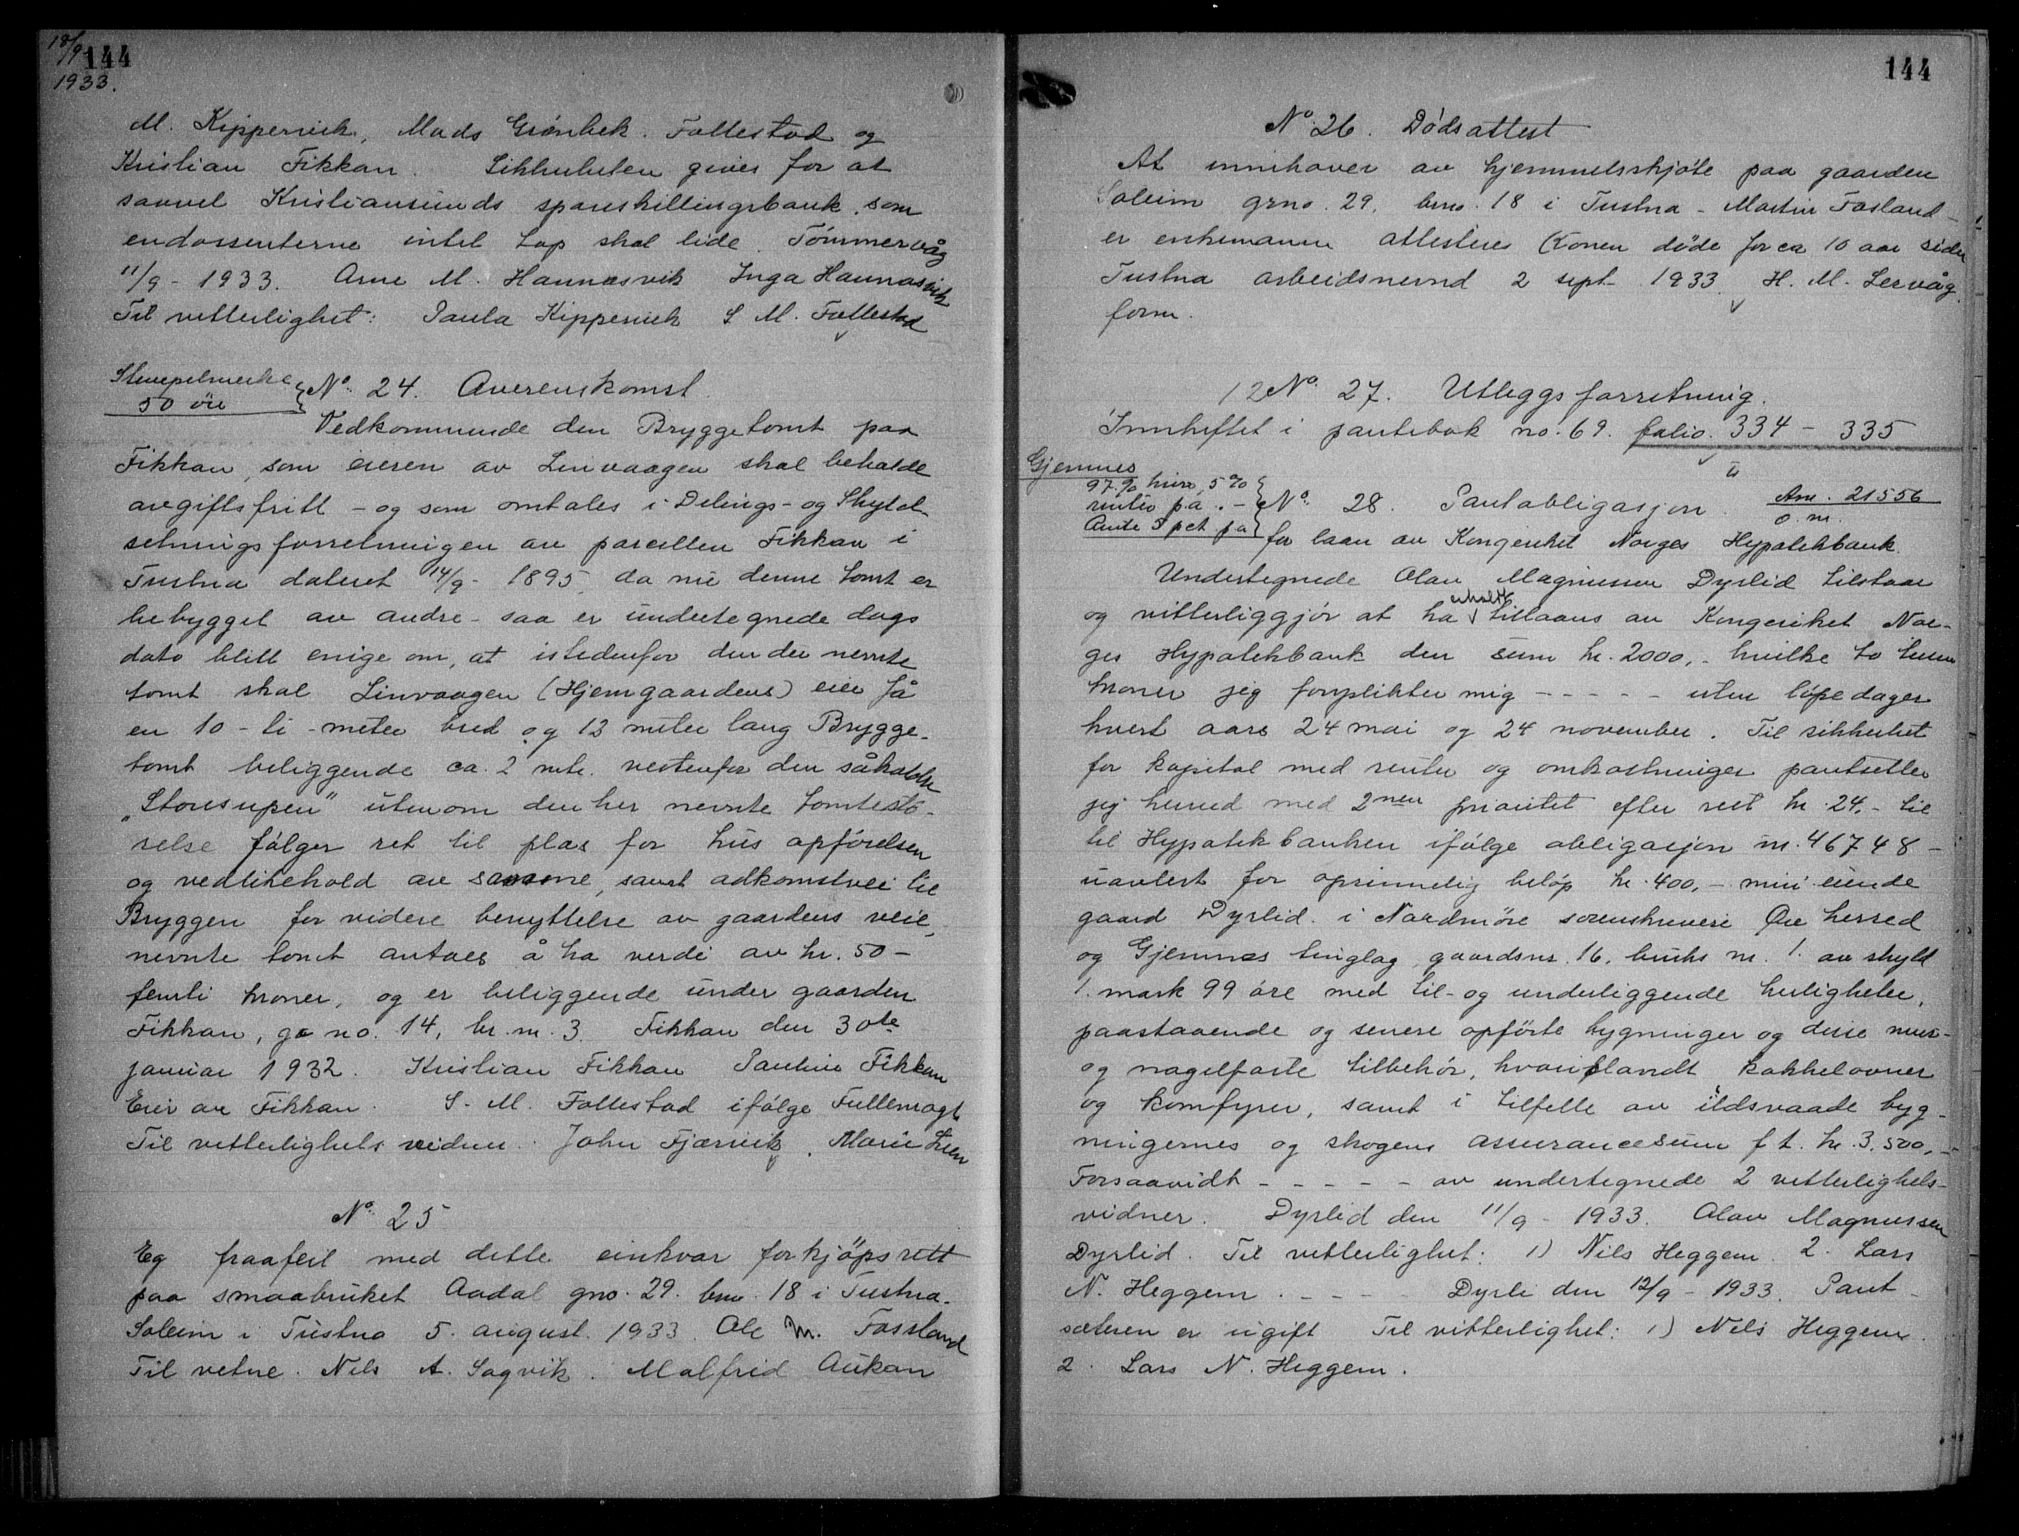 18/9
144
1933.
M. Kippervik, Mads Grönbek. Follestad og
Kristian Fikkan. Sikkerheten gives for at
saavel Kristiansunds spareskillingsbank som
endossenterne intet tap skal lide. Tömmervåg
11/9 - 1933. Arne M. Hannasvik Inga Hannasvik
Til vitterlighet: Paula Kippervik S M. Follestad
Stempelmerke
50 öre
No. 24. Overenskomst.
Vedkommende den Bryggetomt paa
Fikkan, som eieren av Linvaagen skal beholde
avgiftsfritt - og som omtales i Delings- og Skyld
setningsforretningen av parcellen Fikkan i
Tustna datert 14/9 - 1895, da nu denne tomt er
bebygget av andre - saa er undertegnede dags
dato blitt enige om, at istedenfor den der nevnte
tomt skal Linvaagen (Hjemgaardens) eier få
en 10 - ti - meter bred og 12 meter lang Brygge-
tomt beliggende ca. 2 mtr. vestenfor den såkaldte
"Storesupen" utenom den her nevnte tomtestö-
relse fölger ret til plas for hus opförelsen
og vedlikehold av samme, samt adkomstvei til
Bryggen for videre benyttelse av gaardens veie,
nevnte tomt antaes å ha verdi av kr. 50 -
femti kroner, og er beliggende under gaarden
Fikkan, g. no. 14, br. nr. 3. Fikkan den 30te
januar 1932. Kristian Fikkan Pauline Fikkan
Eier av Fikkan. S. M. Follestad ifölge Fullmagt
Til vitterlighets vidne. John Fjærvik, Marie Lien
No. 25
Eg fraafell med dette einkvar forkjöpsrett
paa smaabruket Aadal gno. 29. bno. 18 i Tustna.
Soleim i Tustna 5. august. 1933 Ole M. Fossland
Til vetne. Nils A. Sagvik. Malfrid Aukan
144
No. 26. Dödsattest
At innehaver av hjemmelsskjöte paa gaarden
Soleim grno. 29, brno. 18 i Tustna - Martin Fosland -
er enkemann attesteres (Konen döde for ca 10 aar siden
Tustna arbeidsnevnd 2 sept. 1933. H. M. Lervåg
form.
12 No. 27. Utleggsforretning.
Innheftet i pantebok no. 69. folio. 334 - 335
Gjemnes
97. % kurs, 5 %
rentes pa. -
Anite 5 pct. p a
No. 28. Pantobligasjon. Anr. 21556
o. m.
for laan av Kongeriket Norges Hypotekbank.
Undertegnede Olav Magnussen Dyrlid tilstaar
og vitterliggjör at ha erholdt tillaans av Kongeriket Nor-
ges Hypotekbank den sum kr. 2000,- hvilke to tusen
kroner jeg forplikter mig - - - - - uten löpedager
hvert aars 24 mai og 24 november. Til sikkerhet
for kapital med renter og omkostninger pantsetter
jeg herved med 2nen prioritet efter rest kr 24.- til
til Hypotekbanken ifölge obligasjon nr. 46748 -
uavlest for oprinnelig belöp kr. 400,- min eiende
gaard Dyrlid i Nordmöre sorenskriveri Öre herred
og Gjemnes tinglag, gaardsnr. 16, bruks nr. 1. av skyld
1. mark 99 öre med til- og underliggende herligheter,
paastaaende og senere opförte bygninger og disse mur-
og nagelfaste tilbehör, hvoriblandt kakkelovner
og komfyrer, samt i tilfelle av ildsvaade byg-
ningernes og skogens assurancesum f. t. kr. 3.500,-
Forsaavidt - - - - - av undertegnede 2 vitterlighets-
vidner. Dyrlid den 11/9 - 1933. Olav Magnussen
Dyrlid. Til vitterlighet: 1) Nils Heggem. 2. Lars
N. Heggem. - - - Dyrli den 12/9 - 1933. Pant-
sæteren er ugift Til vitterlighet: 1) Nils Heggem.
2. Lars N. Heggem.